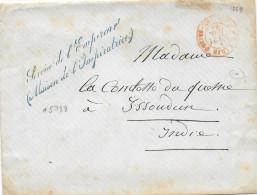 Service de l'Empereur
(Maison de l'Impératrice)
Madame
La Comtesse du quesne
à Issoudun
Indre